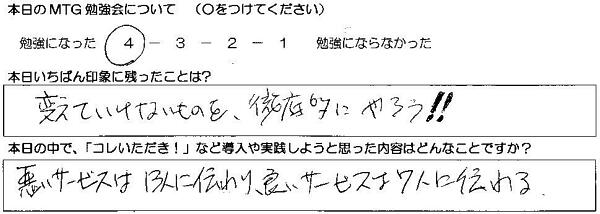 本日のMTG勉強会について （〇をつけてください）
勉強になった 4 － 3 － 2 － 1 勉強にならなかった
本日いちばん印象に残ったことは?
変えていけないものを、徹底的にやろう!!
本日の中で、「コレいただき！」など導入や実践しようと思った内容はどんなことですか?
悪いサービスは13人に伝わり、良いサービスは7人に伝わる.